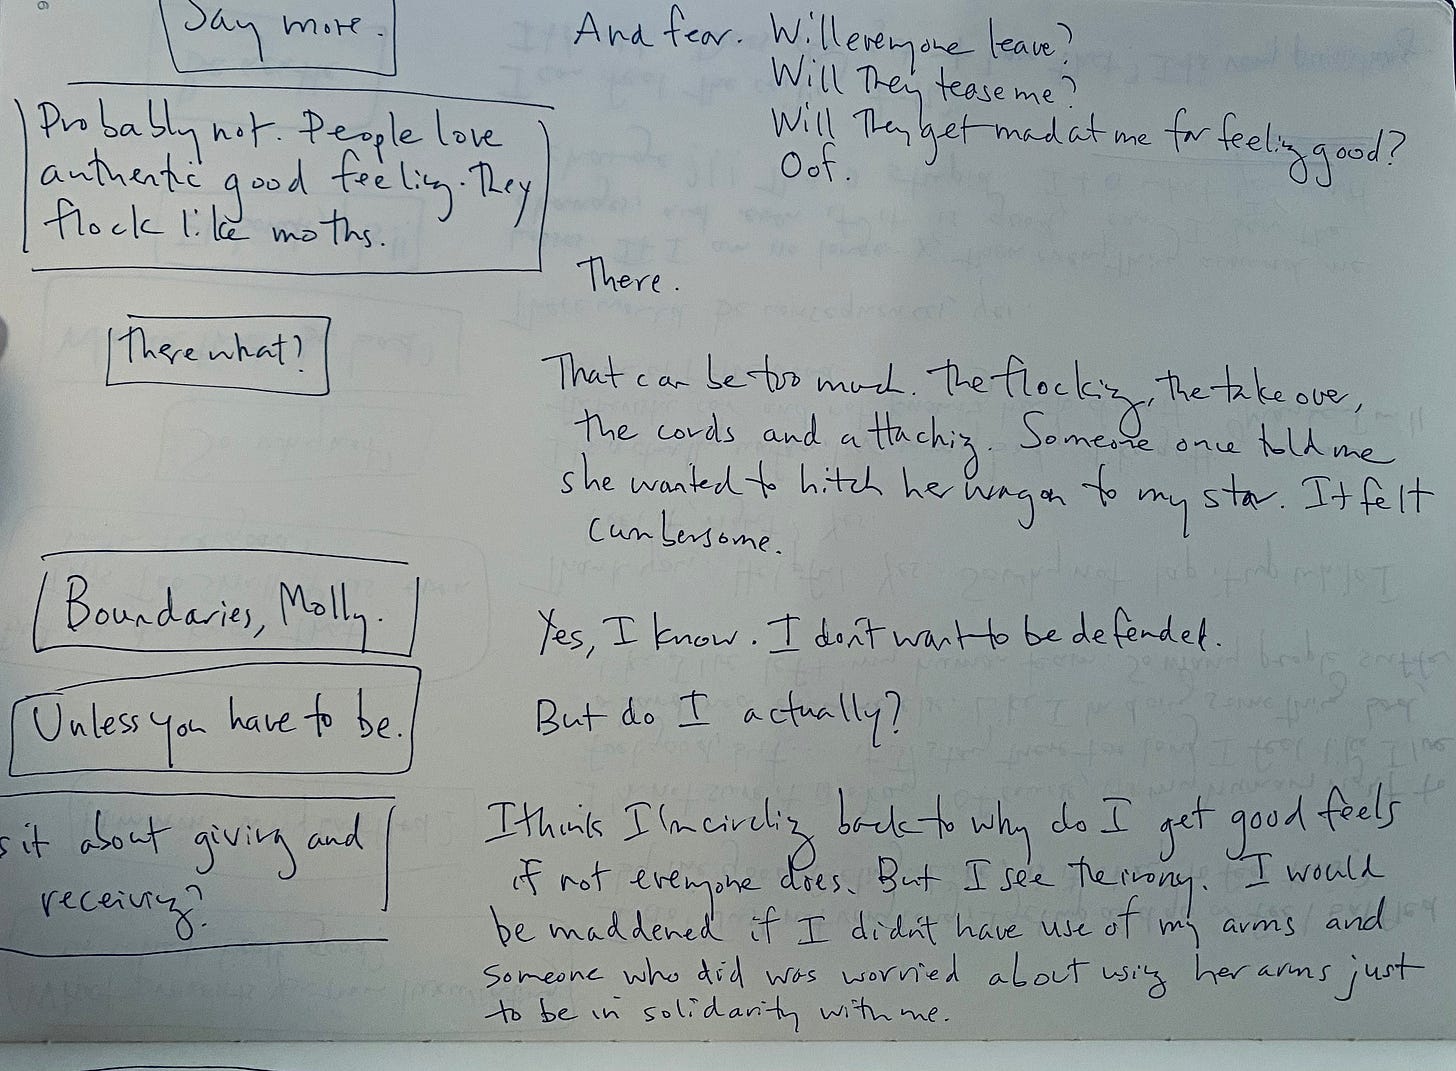 Say more.
And fear. Will everyone leave?
Will They tease me?
Will They get mad at me for feeling good?
Oof.
Probably not. People love
authentic good feeling. They
flock like moths.
There.
There what?
That can be too much. The flocking, the take over,
the cords and attaching. Someone once told me
she wanted to hitch her wagon to my star. It felt
cumbersome.
Boundaries, Molly.
Yes, I know. I don't want to be defended.
Unless you have to be.
But do I actually?
s it about giving and
receiving?
I think I'm circling back to why do I get good feels
if not everyone does. But I see the irony. I would
be maddened if I didn't have use of my arms and
someone who did was worried about using her arms just
to be in solidarity with me.